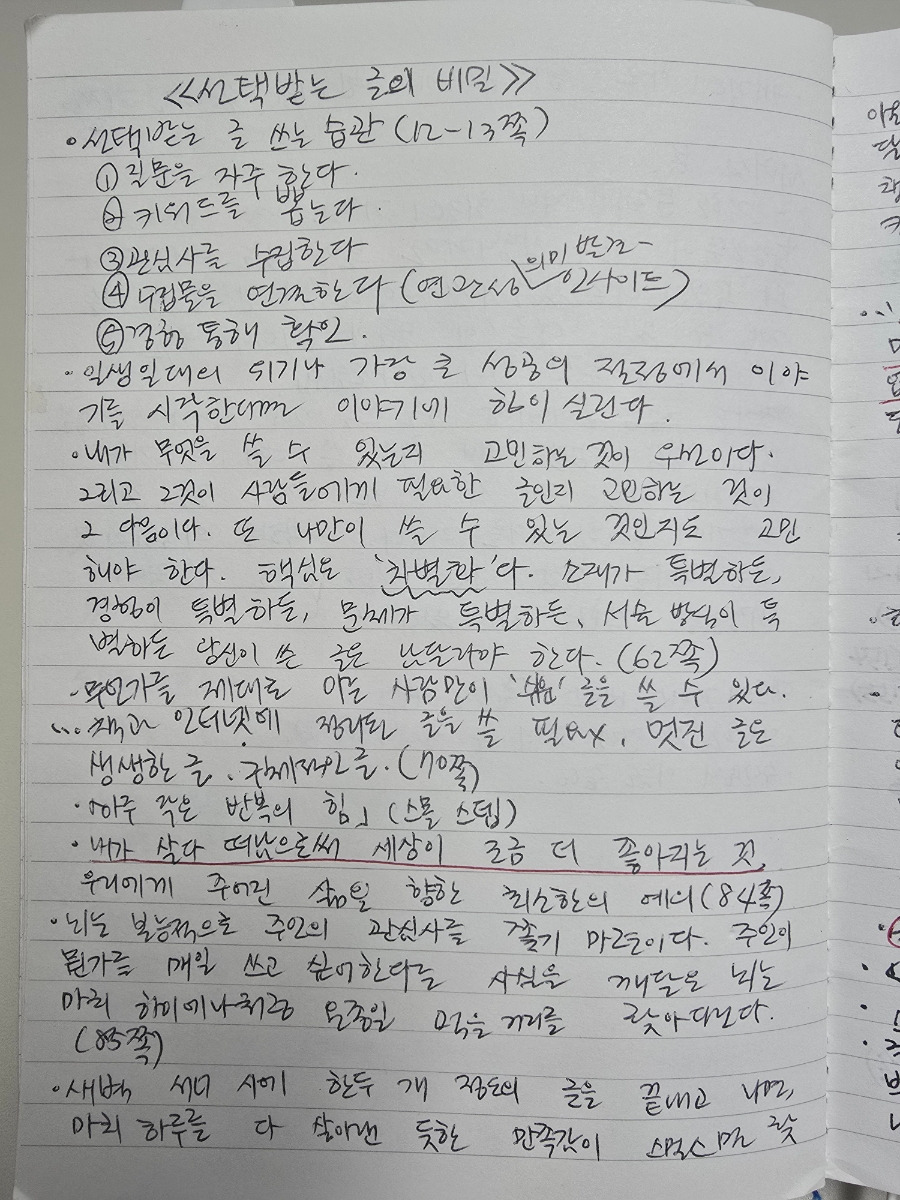 《선택받는 글의 비밀》
• 선택받는 글 쓰는 습관 (12-13쪽)
① 질문을 자주 한다.
② 키워드를 뽑는다.
③ 관심사를 수집한다
④ 수집물을 연결한다 (연관성 의미 발견- 인사이트)
⑤ 경험 통해 확인.
• 일생일대의 위기나 가장 큰 성공의 절정에서 이야
기를 시작한다면 이야기에 힘이 실린다.
• 내가 무엇을 쓸 수 있는지 고민하는 것이 우선이다.
그리고 그것이 사람들에게 필요한 글인지 고민하는 것이
그 다음이다. 또 나만이 쓸 수 있는 것인지도 고민
해야 한다. 핵심은 '차별화'다. 소재가 특별하든,
경험이 특별하든, 문체가 특별하든, 서술 방식이 특
별하든 당신이 쓴 글은 남달라야 한다. (62쪽)
• 무언가를 제대로 아는 사람만이 '쉬운' 글을 쓸 수 있다.
... 책과 인터넷에 정리된 글을 쓸 필요x, 멋진 글은
생생한 글, 구체적인 글. (70쪽)
• 「아주 작은 반복의 힘」 (스몰 스텝)
• 내가 살다 떠남으로써 세상이 조금 더 좋아지는 것,
우리에게 주어진 삶을 향한 최소한의 예의 (84쪽)
• 뇌는 본능적으로 주인의 관심사를 쫓기 마련이다. 주인이
뭔가를 매일 쓰고 싶어한다는 사실을 깨달은 뇌는
마치 하이에나처럼 온종일 먹을거리를 찾아다닌다.
(85쪽)
• 새벽 서너 시에 한두 개 정도의 글을 끝내고 나면,
마치 하루를 다 살아낸 듯한 만족감이 스멀스멀 찾